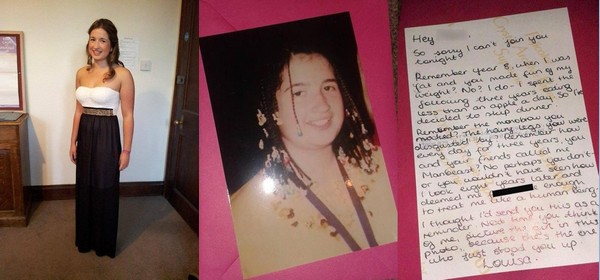 Hey
So sorry I can't join you
tonight.
Remember year 8, when I was
fat and you made fun of my
weight? No? I do - I spent the
following three years eating
less than an apple a day. So I've
decided to skip dinner.
Remember the monobrow you
mocked? The hairy legs you were
disgusted by? Remember how
every day for three years, you
and your friends called me
Manbeast? No perhaps you don't-
or you wouldn't have seen how
I look eight years later and
deemed me enough
to treat me like a human being.
I thought I'd send you this as a
reminder. Next time you think
of me, picture the girl in this
photo, because she's the one
who just stood you up.
Louisa.